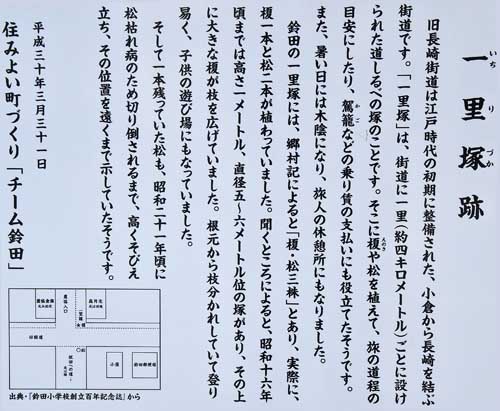 一里塚跡
いち
づか
旧長崎街道は江戸時代の初期に整備された、小倉から長崎を結ぶ
街道です。「一里塚」は、街道に一里(約四キロメートル)ごとに設け
られた道しるべの塚のことです。そこに榎や松を植えて、旅の道程の
えのき
目安にしたり、駕籠などの乗り賃の支払いにも役立てたそうです。
かご
また、暑い日には木陰になり、旅人の休憩所にもなりました。
鈴田の一里塚には、郷村記によると「榎・松三株」とあり、実際に、
榎一本と松二本が植わっていました。聞くところによると、昭和十六年
頃までは高さ一メートル、直径五~六メートル位の塚があり、その上
に大きな榎が枝を広げていました。根元から枝分かれしていて登り
易く、子供の遊び場にもなっていました。
そして一本残っていた松も、昭和二十一年頃に
松枯れ病のため切り倒されるまで、高くそびえ
立ち、その位置を遠くまで示していたそうです。
平成三十年三月三十一日
住みよい町づくり「チーム鈴田」
旧街道
小屋
鈴田郵便局
出典・『鈴田小学校創立百年記念誌』から